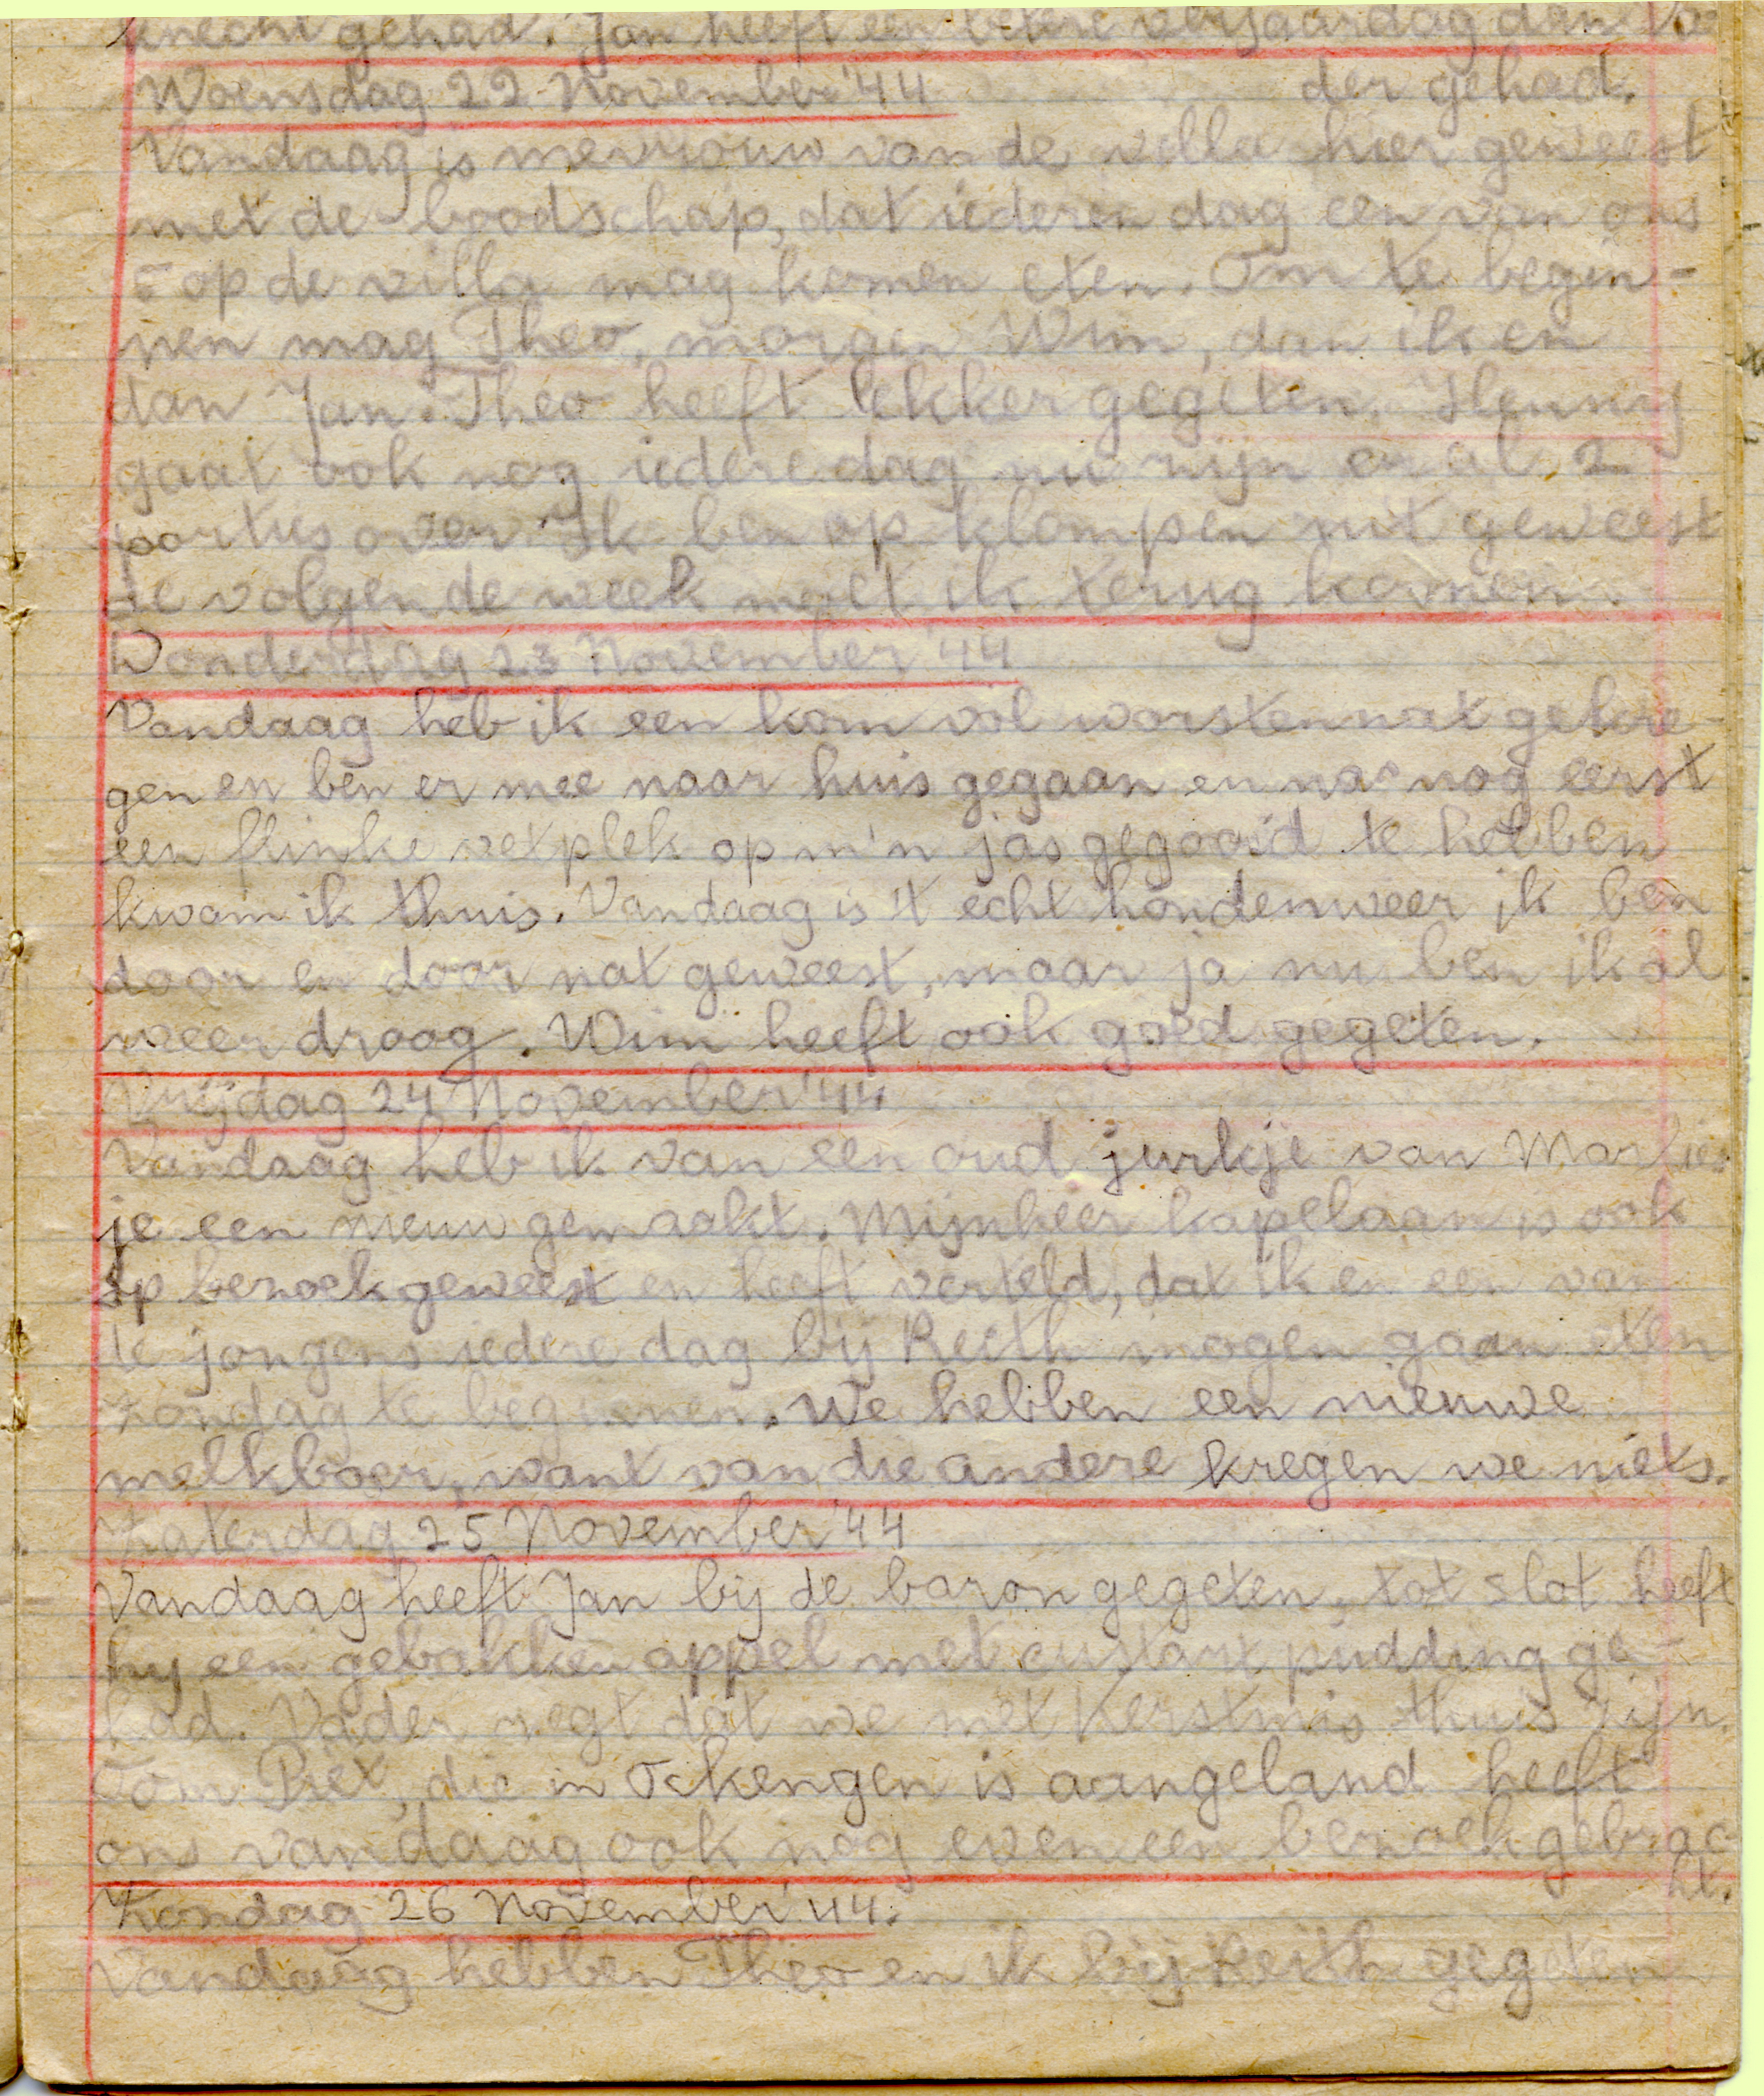 knecht gehad. Jan heeft een betere verjaardag dan Va-
Woensdag 22 November '44 der gehad.
Vandaag is mevrouw van de villa hier geweest
met de boodschap, dat iederen dag een van ons
5 op de villa mag komen eten. Om te begin-
nen mag Theo, morgen Wim, dan ik en
dan Jan. Theo heeft lekker gegeten. Henny
gaat ook nog iedere dag nu zijn er al 2
porties over. Ik ben op klompen uit geweest
de volgende week moet ik terug komen.
Donderdag 23 November '44
Vandaag heb ik een kom vol worstennat gekre-
gen en ben er mee naar huis gegaan en na nog eerst
een flinke vetplek op m'n jas gegooid te hebben
kwam ik thuis. Vandaag is 't echt hondenweer ik ben
door en door nat geweest, maar ja nu ben ik al
weer droog. Wim heeft ook goed gegeten.
Vrijdag 24 November '44
Vandaag heb ik van een oud jurkje van Marlies
je een nieuw gemaakt. Mijnheer kapelaan is ook
op bezoek geweest en heeft verteld, dat ik en een van
de jongens iedere dag bij Reith mogen gaan eten
zondag te beginnen. We hebben een nieuwe
melkboer, want van die andere kregen we niets.
Zaterdag 25 November '44
Vandaag heeft Jan bij de baron gegeten, tot slot heeft
hij een gebakken appel met custart pudding ge-
had. Vader zegt dat we met Kerstmis thuis zijn.
Oom Piet, die in Ockengen is aangeland heeft
ons vandaag ook nog even een bezoek gebrac
ht.
Zondag 26 November '44.
Vandaag hebben Theo en ik bij Reith gegeten